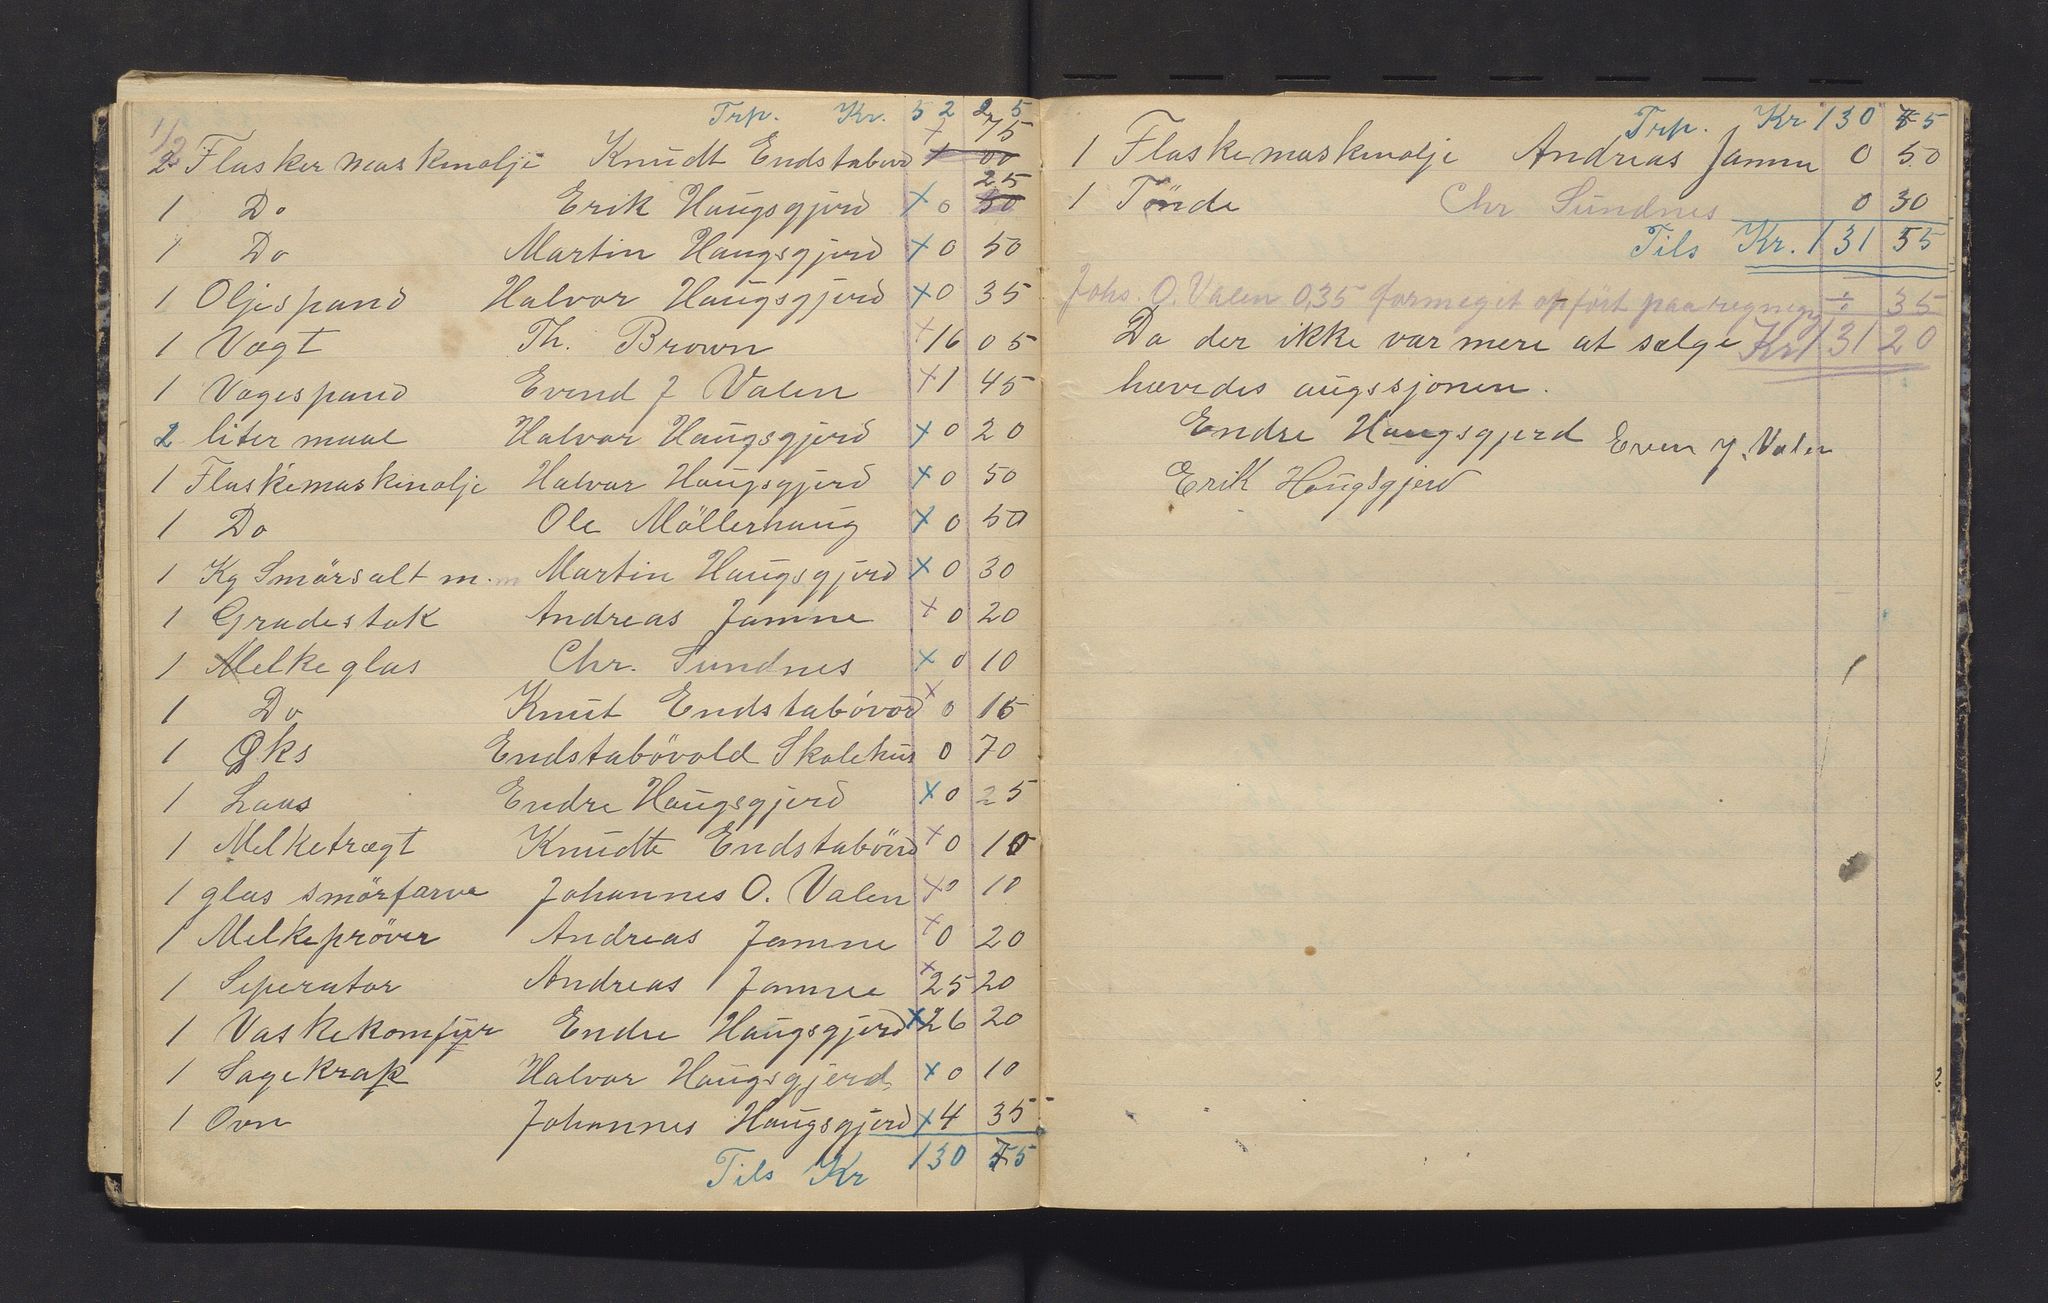 Trp. Kr. 52 25
1/2
2 Flasker maskinolje Knudt Endstabøvd + 75
1 00
1 Do Erik Haugsgjerd x 0 25
50
1 Do Martin Haugsgjerd x 0 50
1 Oljespand Halvor Haugsgjerd x 0 35
1 Vægt Th. Brown + 16 05
1 Vagespand Evend J Valen + 1 45
2 liter maal Halvor Haugsgjerd x 0 20
1 Flaskemaskinolje Halvor Haugsgjerd x 0 50
1 Do Ole Möllerhaug x 0 50
1 Kg Smørsalt m. m Martin Haugsgjerd x 0 30
1 Gradestok Andreas Jamne + 0 20
1 Melkeglas Chr. Sundnes x 0 10
1 Do Knut Endstabövod x 0 15
1 Øks Endstabövold Skolehus 0 70
1 Laas Endre Haugsgjerd x 0 25
1 Melketrægt Knudte Endstabövd + 0 10
1 glas smörfarve Johannes O. Valen x 0 10
1 Melkepröver Andreas Jamne + 0 20
1 Seperator Andreas Jamne x 25 20
1 Vaskekomfyr Endre Haugsgjerd x 26 20
1 Sagekrak Halvor Haugsgjerd x 0 10
1 Ovn Johannes Haugsgjerd x 4 35
Tils Kr 130 75
Trp. Kr 130 75
1 Flaskemaskenolje Andreas Jamne 0 50
1 Tönde Chr Sundnes 0 30
Tils Kr. 131 55
Johs. O. Valen 0,35 formeget opfört paa regning ÷ 35
Da der ikke var mere at sælge Kr 131 20
hævedes augssjonen.
Endre Haugsgjerd Even J. Valen
Erik Haugsgjerd